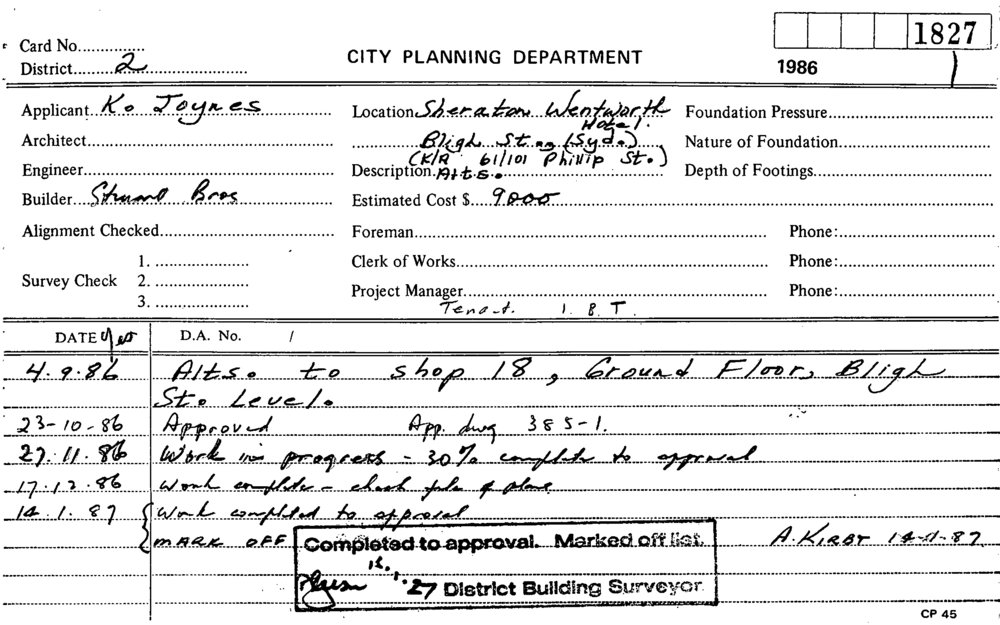 1827
Card No...............
District 2
CITY PLANNING DEPARTMENT
1986
Applicant K. Joynes
Location Sheraton Wentworth Hotel.
Foundation Pressure
Architect
Bligh St. (Syd.)
Nature of Foundation
(K/A 61/101 Phillip St.)
Engineer
Description Alts.
Depth of Footings
Builder Stuart Bros
Estimated Cost $ 9000
Alignment Checked
Foreman
Phone:
Survey Check
1.
2.
3.
Clerk of Works
Phone:
Project Manager
Phone:
Tenant. I. B. T.
DATE
D.A. No. /
4.9.86 Alts. to shop 18, Ground Floor, Bligh
St. Level.
23-10-86 Approved App. dwg 385-1.
27.11.86 Work in progress - 30% complete to approval
17.12.86 Work complete - check file & plans
14.1.87 Work completed to approval
MARK OFF
A. KIRBY 14-1-87
Completed to approval. Marked off list.
District Building Surveyor.
CP 45